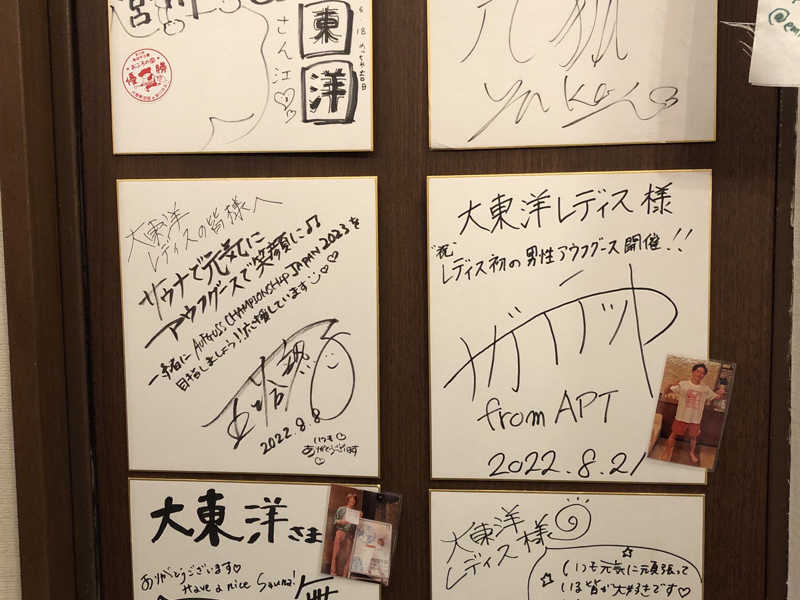 宮川
さん江♡
東
洋
6
18
優勝
Yuka
大東洋
レディスの皆様へ
サウナで元気に
アウフグースで笑顔に♫
一緒にAUFGUSS CHAMPIONSHIP JAPAN 2023を
目指しましょう!!応援しています☺♡♡
2022.8.8
いつも♡
ありがとうございます
♡
大東洋レディス様
"祝"
レディス初の男性アウフグース開催!!
from APT
2022.8.21
大東洋さま
ありがとうございます♡
Have a nice Sauna!
大東洋
レディス様
いつも元気に頑張って
いる皆が大好きです♡